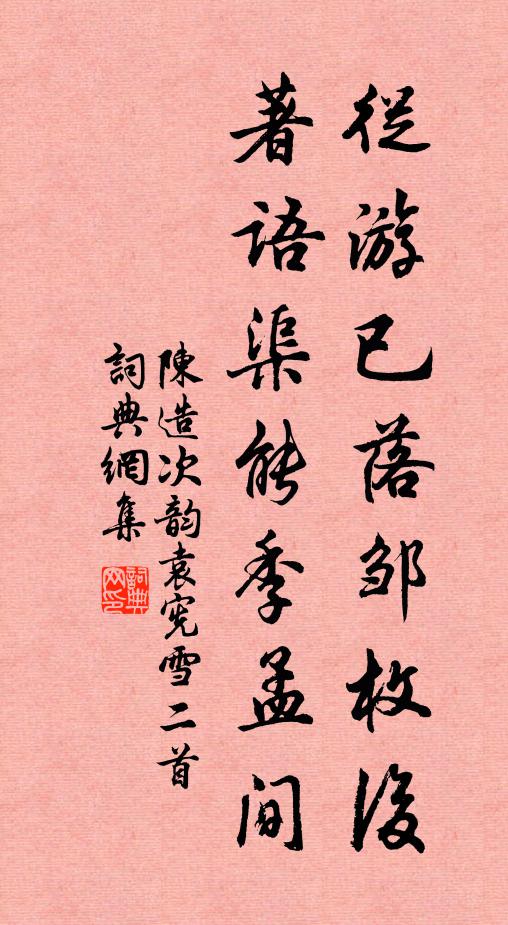 從游已落邹枚後
著語渠能季孟间
陳造次韵袁宪雪二首
詞典網集
詞典網印